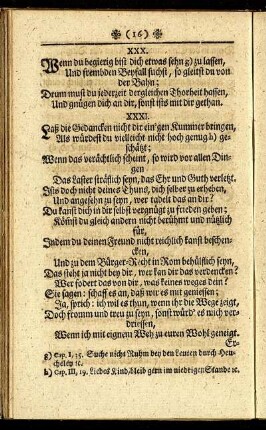 (16)
XXX.
Wenn du begierig bist dich etwas sehn g) zu lassen,
Und frembden Beyfall suchst, so gleitst du von
der Bahn;
Drum must du jederzeit dergleichen Thorheit hassen,
Und gnügen dich an dir, sonst ists mit dir gethan.
XXXI.
Laß die Gedancken nicht dir ein'gen Kummer bringen,
Als würdest du vielleicht nicht hoch genug h) ge-
schätzt;
Wenn das verächtlich scheint, so wird vor allen Din-
gen
Das Laster sträflich seyn, das Ehr und Guth verletzt.
Ists doch nicht deines Thuns, dich selber zu erheben,
Und angesehn zu seyn, wer tadelt das an dir?
Du kanst dich in dir selbst vergnügt zu frieden geben;
Kömst du gleich andern nicht berühmt und nützlich
für,
Indem du deinen Freund nicht reichlich kanst beschen-
cken,
Und zu dem Bürger-Recht in Rom behülflich seyn,
Das steht ja nicht bey dir, wer kan dir das verdencken?
Wer fodert das von dir, was keines weges dein?
Sie sagen: schaff es an, daß wir es mit geniessen;
Ja, sprich: ich wil es thun, wenn ihr die Wege zeigt,
Doch fromm und treu zu seyn, sonst würd' es mich ver-
driessen,
Wenn ich mit eignem Weh zu euren Wohl geneigt.
Er-
g) Cap. I, 35. Suche nicht Ruhm bey den Leuten durch Heu-
cheley ꝛc.
h) Cap. III, 19. Liebes Kind, bleib gern im niedrigen Stande ꝛc.